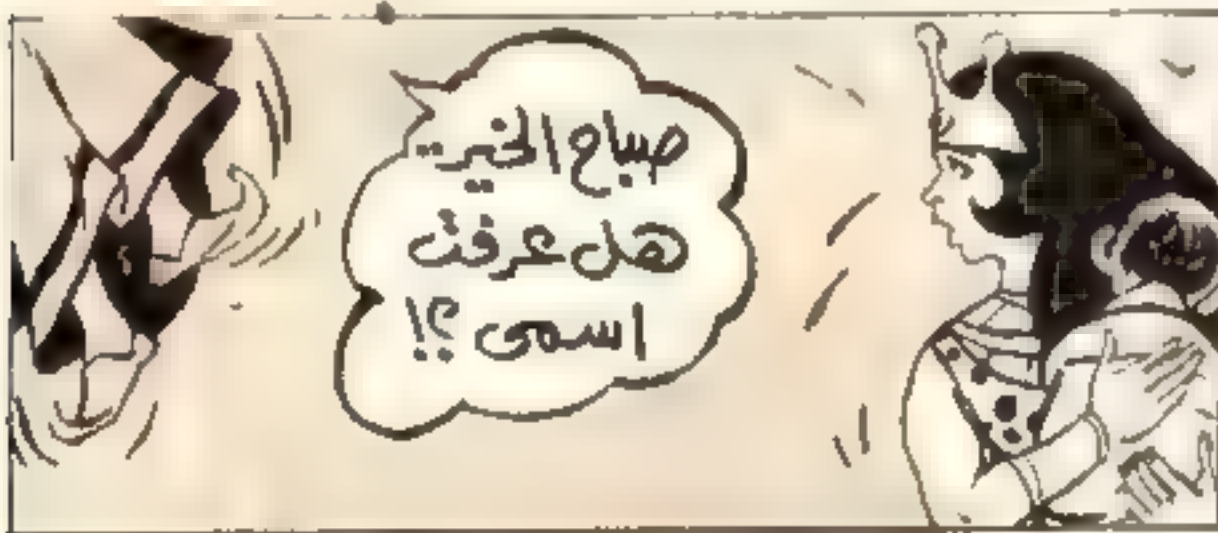 صباح الخير..
هل عرفت
اسمى ؟!